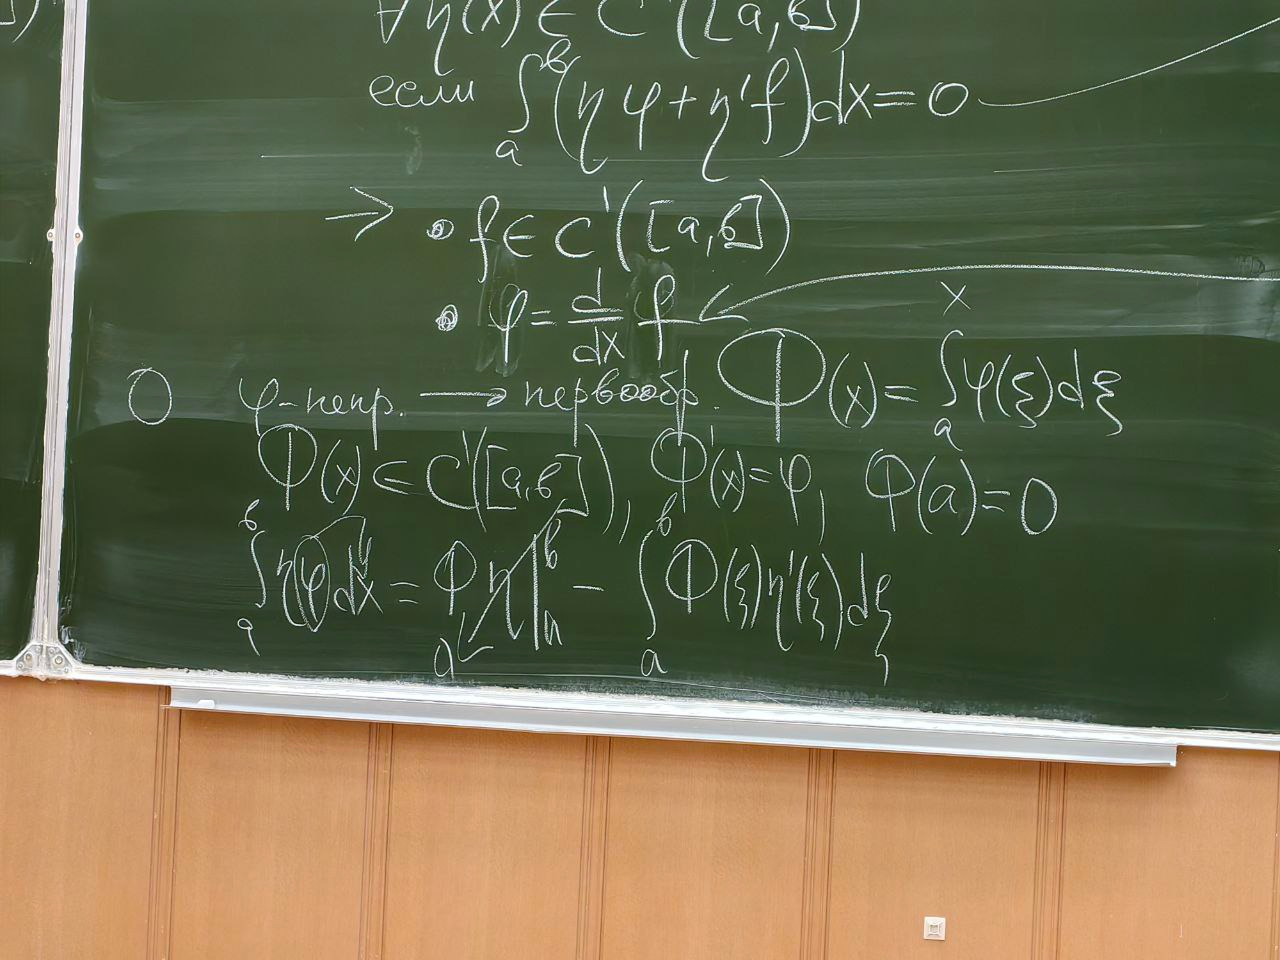 ∀ η(x) ∈ C'([a,b])
если ∫ₐᵇ (ηφ + η'f)dx = 0
→ • f ∈ C'([a,b])
• φ = d/dx f
φ-непр. → первообр. Φ(x) = ∫ₐˣ φ(ξ)dξ
Φ(x) ∈ C'([a,b]), Φ'(x) = φ, Φ(a) = 0
∫ₐᵇ ηφ dx = Φη|ₐᵇ − ∫ₐᵇ Φ(ξ)η'(ξ)dξ